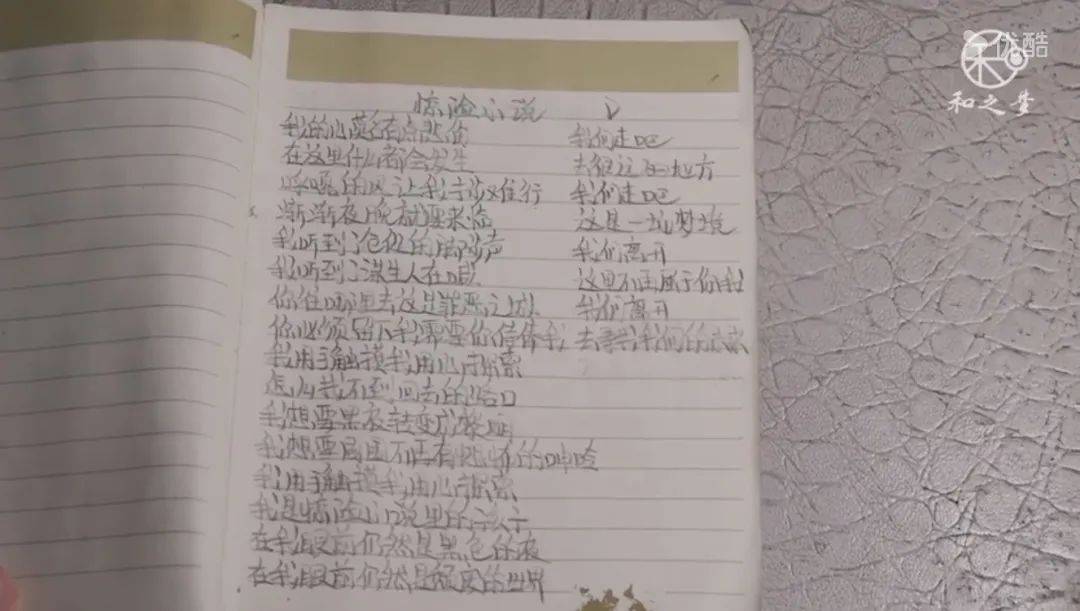 优酷
和之梦
惊险小说
我的心莫名有点悲伤
在这里什么都会发生
呼啸的风让我寸步难行
渐渐夜晚就要来临
我听到了仓促的脚步声
我听到了陌生人在哦
你往哪里去这是罪恶之城
你必须留下我需要你陪伴我
我用手触摸我用心探索
怎么找不到回去的路口
我想要黑夜转变成黎明
我想要周围不再有恐怖的呻吟
我用手触摸我用心探索
我是惊险小说里的
在我眼前仍然是黑色的夜
在我眼前仍然是寂寞的世界
我们走吧
去很远的地方
我们走吧
这是一场梦
我们离开
这里不再属于你我
我们离开
去寻找我们的